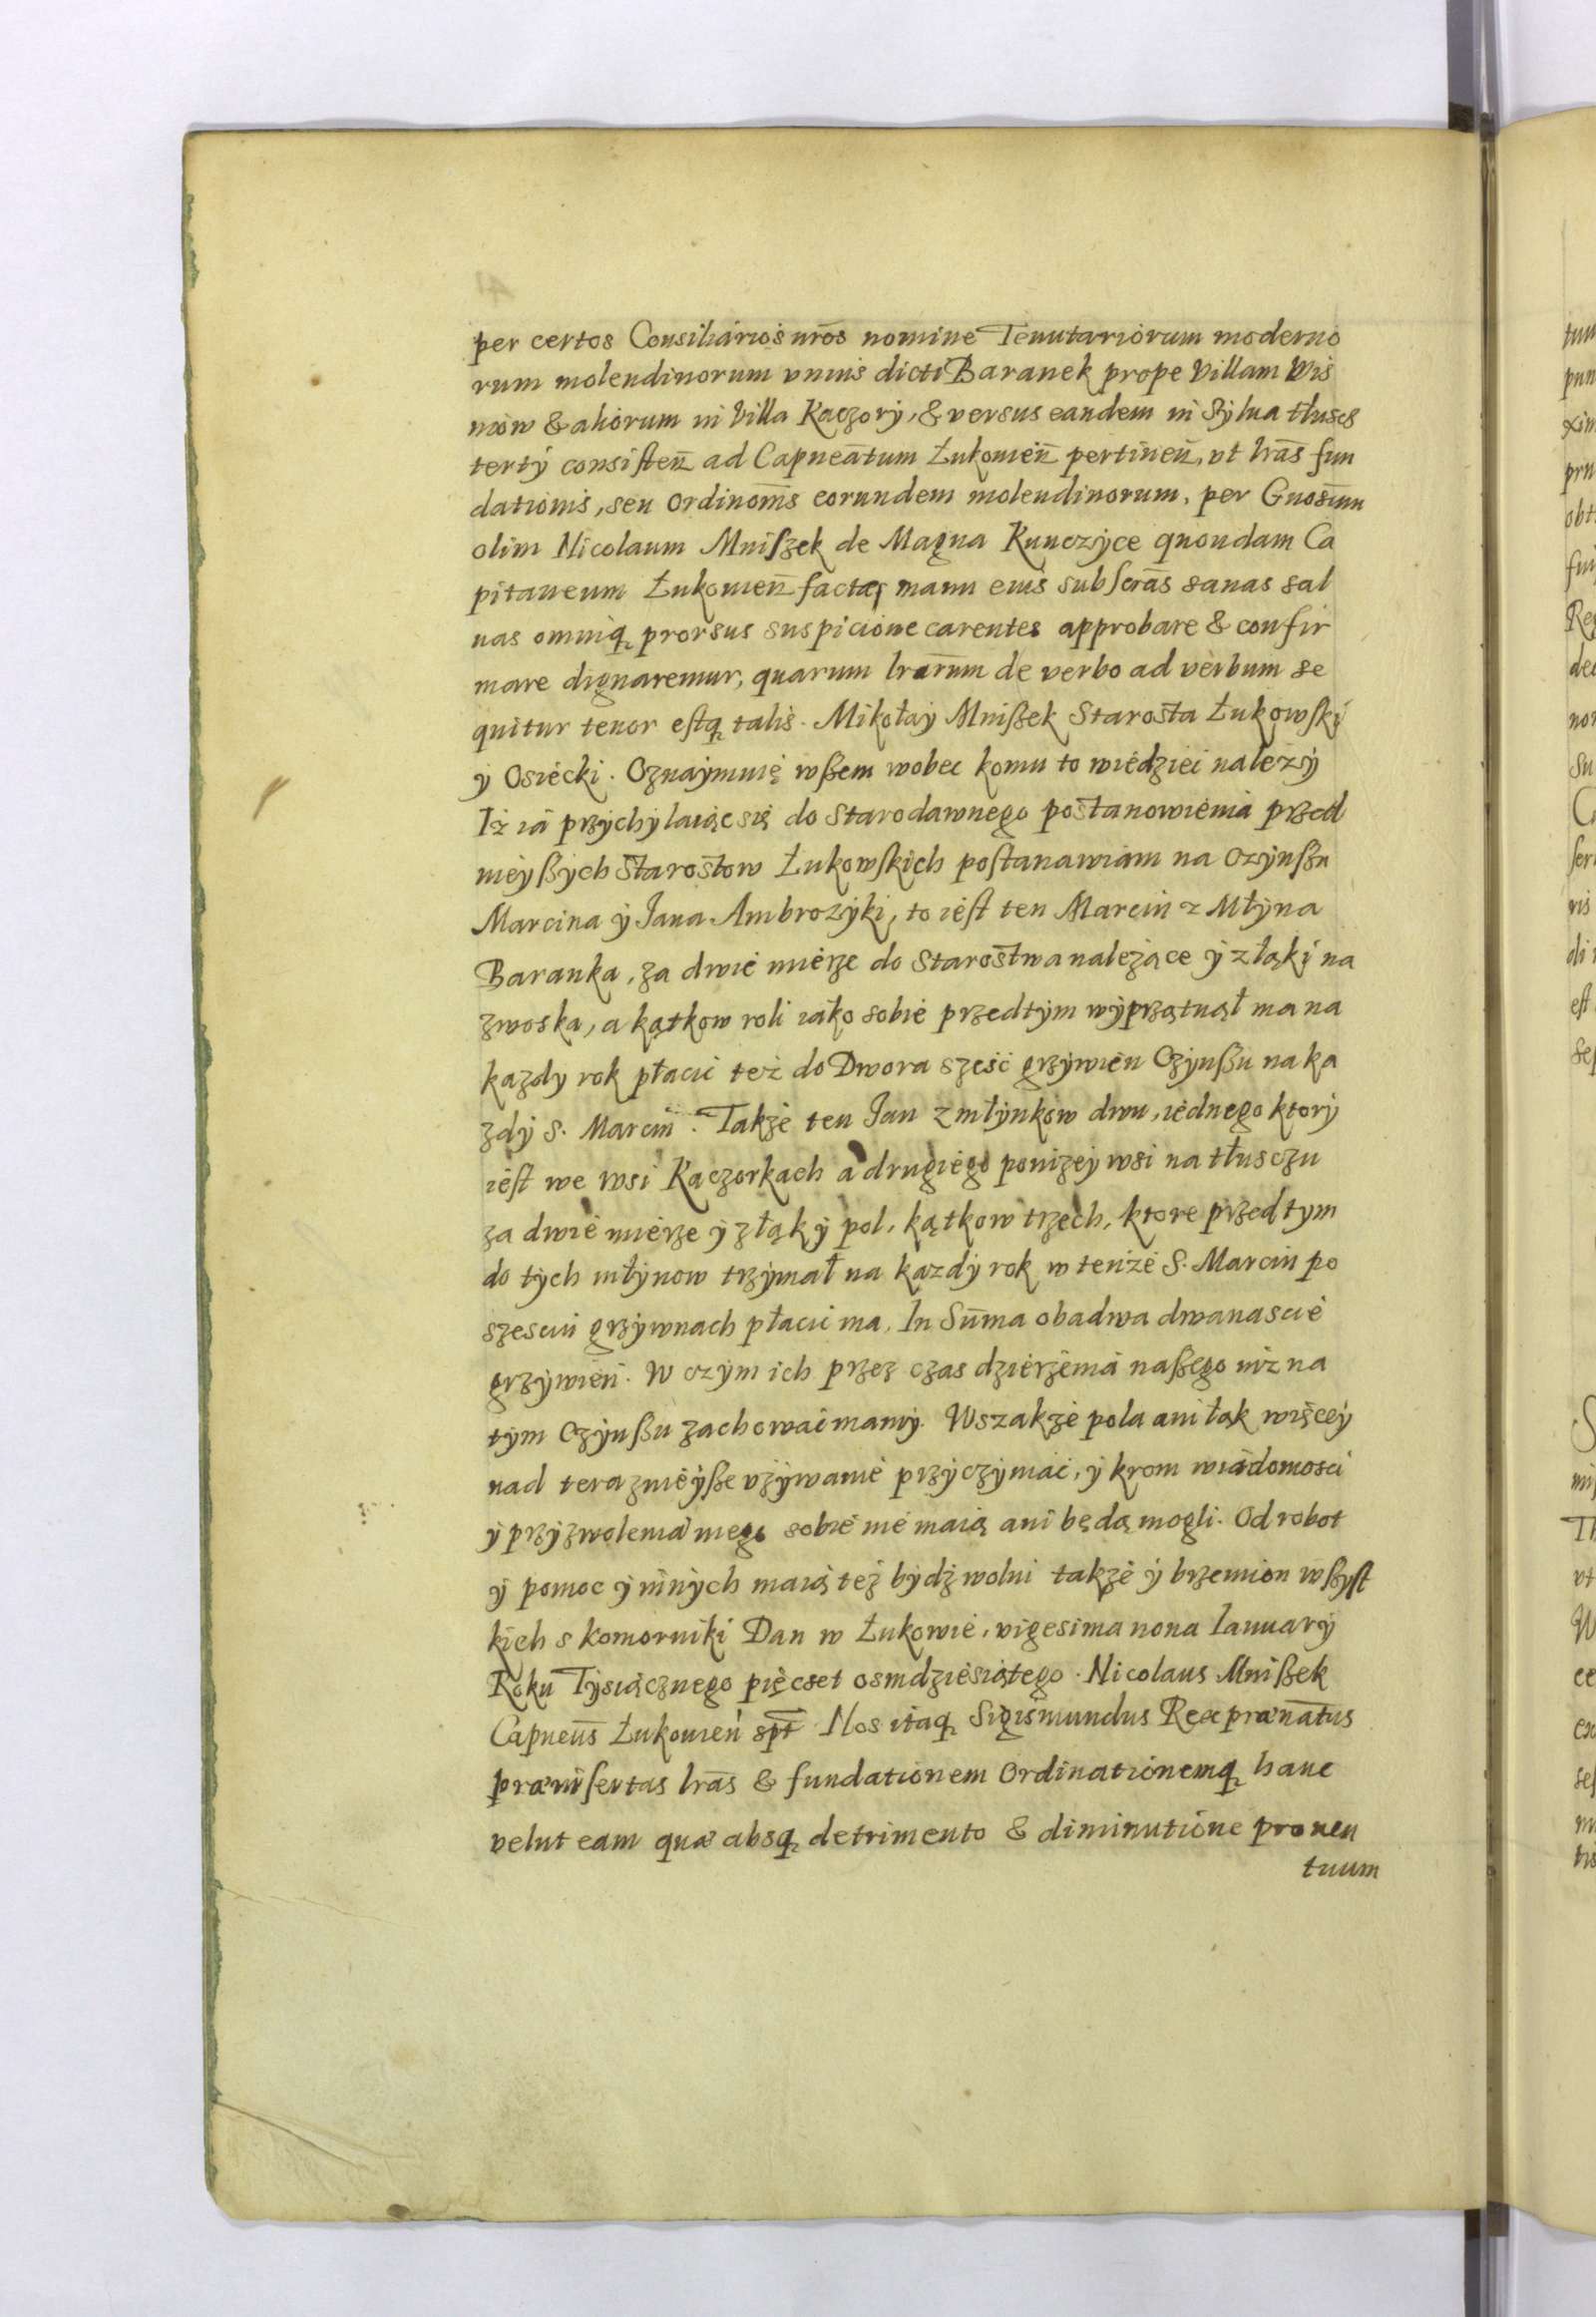 per certos Consiliarios nrōs nomine Tenutariorum moderno
rum molendinorum vnius dicti Baranek prope Villam Wis
niow & aliorum in Villa Kaczory, & versus eandem in Sylua tłuscz
terty consisteñ ad Capneātum Łukowieñ pertineñ, vt lrās fun
dationis, seu ordinoīs eorundem molendinorum, per Gnosum
olim Nicolaum Mniszek de Magna Kunczyce quondam Ca
pitaneum Łukowieñ factas manu eius subscrās sanas sal
uas omniq; prorsus suspicione carentes approbare & confir
mare dignaremur, quarum lrārum de verbo ad verbum se
quitur tenor estq; talis. Mikołay Mnißek Starosta Łukowski
y Osiecki. Oznaymuię wßem wobec komu to wiedziec nalezy
Iż ia przychylaiąc się do starodawnego postanowienia przed
nieyßych starostow Łukowskich postanawiam na Czynßu
Marcina y Jana Ambrozyki, to iest ten Marcin z Młyna
Baranka, za dwie mierze do starostwa nalezące y z łąki na
zwoska, a kątkow roli iako sobie przedtym wyprzątnął ma na
kazdy rok płacic też do Dwora szesc grzywien Czynßu na ka
zdy S. Marcin. Takze ten Jan z młynkow dwu, iednego ktory
iest we wsi Kaczorkach a drugiego ponizey wsi na tłusczu
za dwie mierze y z łąk y pol, kątkow trzech, ktore przed tym
do tych młynow trzymał na kazdy rok w tenże S. Marcin po
szesciu grzywnach płacic ma. In Sum̄a obadwa dwanascie
grzywien. W czym ich przez czas dzierzenia naßego niz na
tym Czynßu zachowac mamy. Wszakze pola ani łąk więcey
nad teraznieyße vzywanie przyczyniac, y krom wiadomosci
y przyzwolenia mego sobie nie maią ani będą mogli. Od robot
y pomoc y innych maią tez bydz wolni takze y brzemion wßyst
kich s komorniki Dan w Łukowie, vigesima nona Ianuary
Roku Tysiącznego pięcset osmdziesiątego. Nicolaus Mnißek
Capneus Łukowien spt Nos itaq; Sigismundus Rex prænatus
præinsertas lrās & fundationem Ordinationemq; hanc
velut eam quæ absq; detrimento & diminutione prouen
tuum